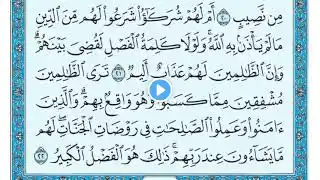 مِن نَّصِيبٍ ٢٠ أَمْ لَهُمْ شُرَكَٰٓؤُا۟ شَرَعُوا۟ لَهُم مِّنَ ٱلدِّينِ
مَا لَمْ يَأْذَنۢ بِهِ ٱللَّهُ ۚ وَلَوْلَا كَلِمَةُ ٱلْفَصْلِ لَقُضِىَ بَيْنَهُمْ ۗ
وَإِنَّ ٱلظَّٰلِمِينَ لَهُمْ عَذَابٌ أَلِيمٌ ٢١ تَرَى ٱلظَّٰلِمِينَ
مُشْفِقِينَ مِمَّا كَسَبُوا۟ وَهُوَ وَاقِعٌۢ بِهِمْ ۗ وَٱلَّذِينَ
ءَامَنُوا۟ وَعَمِلُوا۟ ٱلصَّٰلِحَٰتِ فِى رَوْضَاتِ ٱلْجَنَّاتِ ۖ لَهُم
مَّا يَشَآءُونَ عِندَ رَبِّهِمْ ۚ ذَٰلِكَ هُوَ ٱلْفَضْلُ ٱلْكَبِيرُ ٢٢